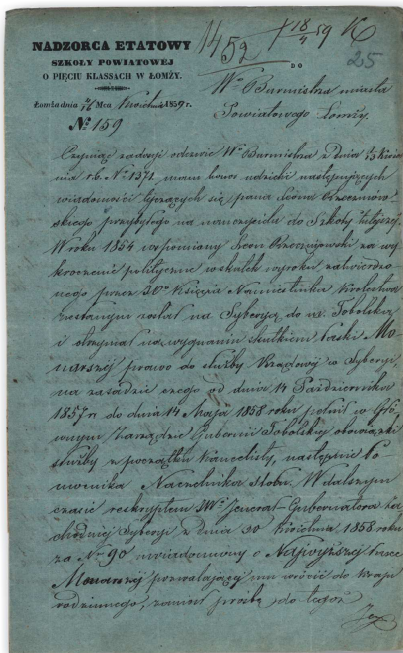 NADZORCA ETATOWY
SZKOŁY POWIATOWÉJ
O PIĘCIU KLASSACH W ŁOMŻY.
1452
18/4 59
25
DO
Wo Burmistrza miasta
Powiatowego Łomży.
Łomża dnia 4/16 Mca Kwietnia 1859 r.
No 159
Czyniąc zadosyć odezwie Wo Burmistrza z dnia 1/13 Kwiet
nia r. b. No 1371, mam honor udzielić następujących
wiadomości tyczących się pana Leona
skiego przybyłego na nauczyciela do Szkoły tutejszej
W roku 1854 wspomniony Leon za wy
kroczenie polityczne wskutek wyroku zatwierdzo
nego przez JO. Księcia Namiestnika Królestwa
zesłanym został na Syberyą do m. Tobolska
i otrzymał na wygnaniu skutkiem łaski Mo
narszéj prawo do służby Rządowej w Syberyi
na zasadzie czego od dnia 14 Października
1857 r. do dnia 14 Maja 1858 roku pełnił w Głó
wnym Zarządzie Gubernii Tobolskiej obowiązki
służby z początku Kancelisty, następnie Po
mocnika Naczelnika Stołu. W dalszym
czasie reskryptem JW. Jenerał-Gubernatora Za
chodniej Syberyi z dnia 30 Kwietnia 1858 roku
za No 90 uwiadomiony o Najwyższej łasce
Monarszej pozwalającéj mu wrócić do kraju
rodzinnego, zaniósł prośbę do tegoż